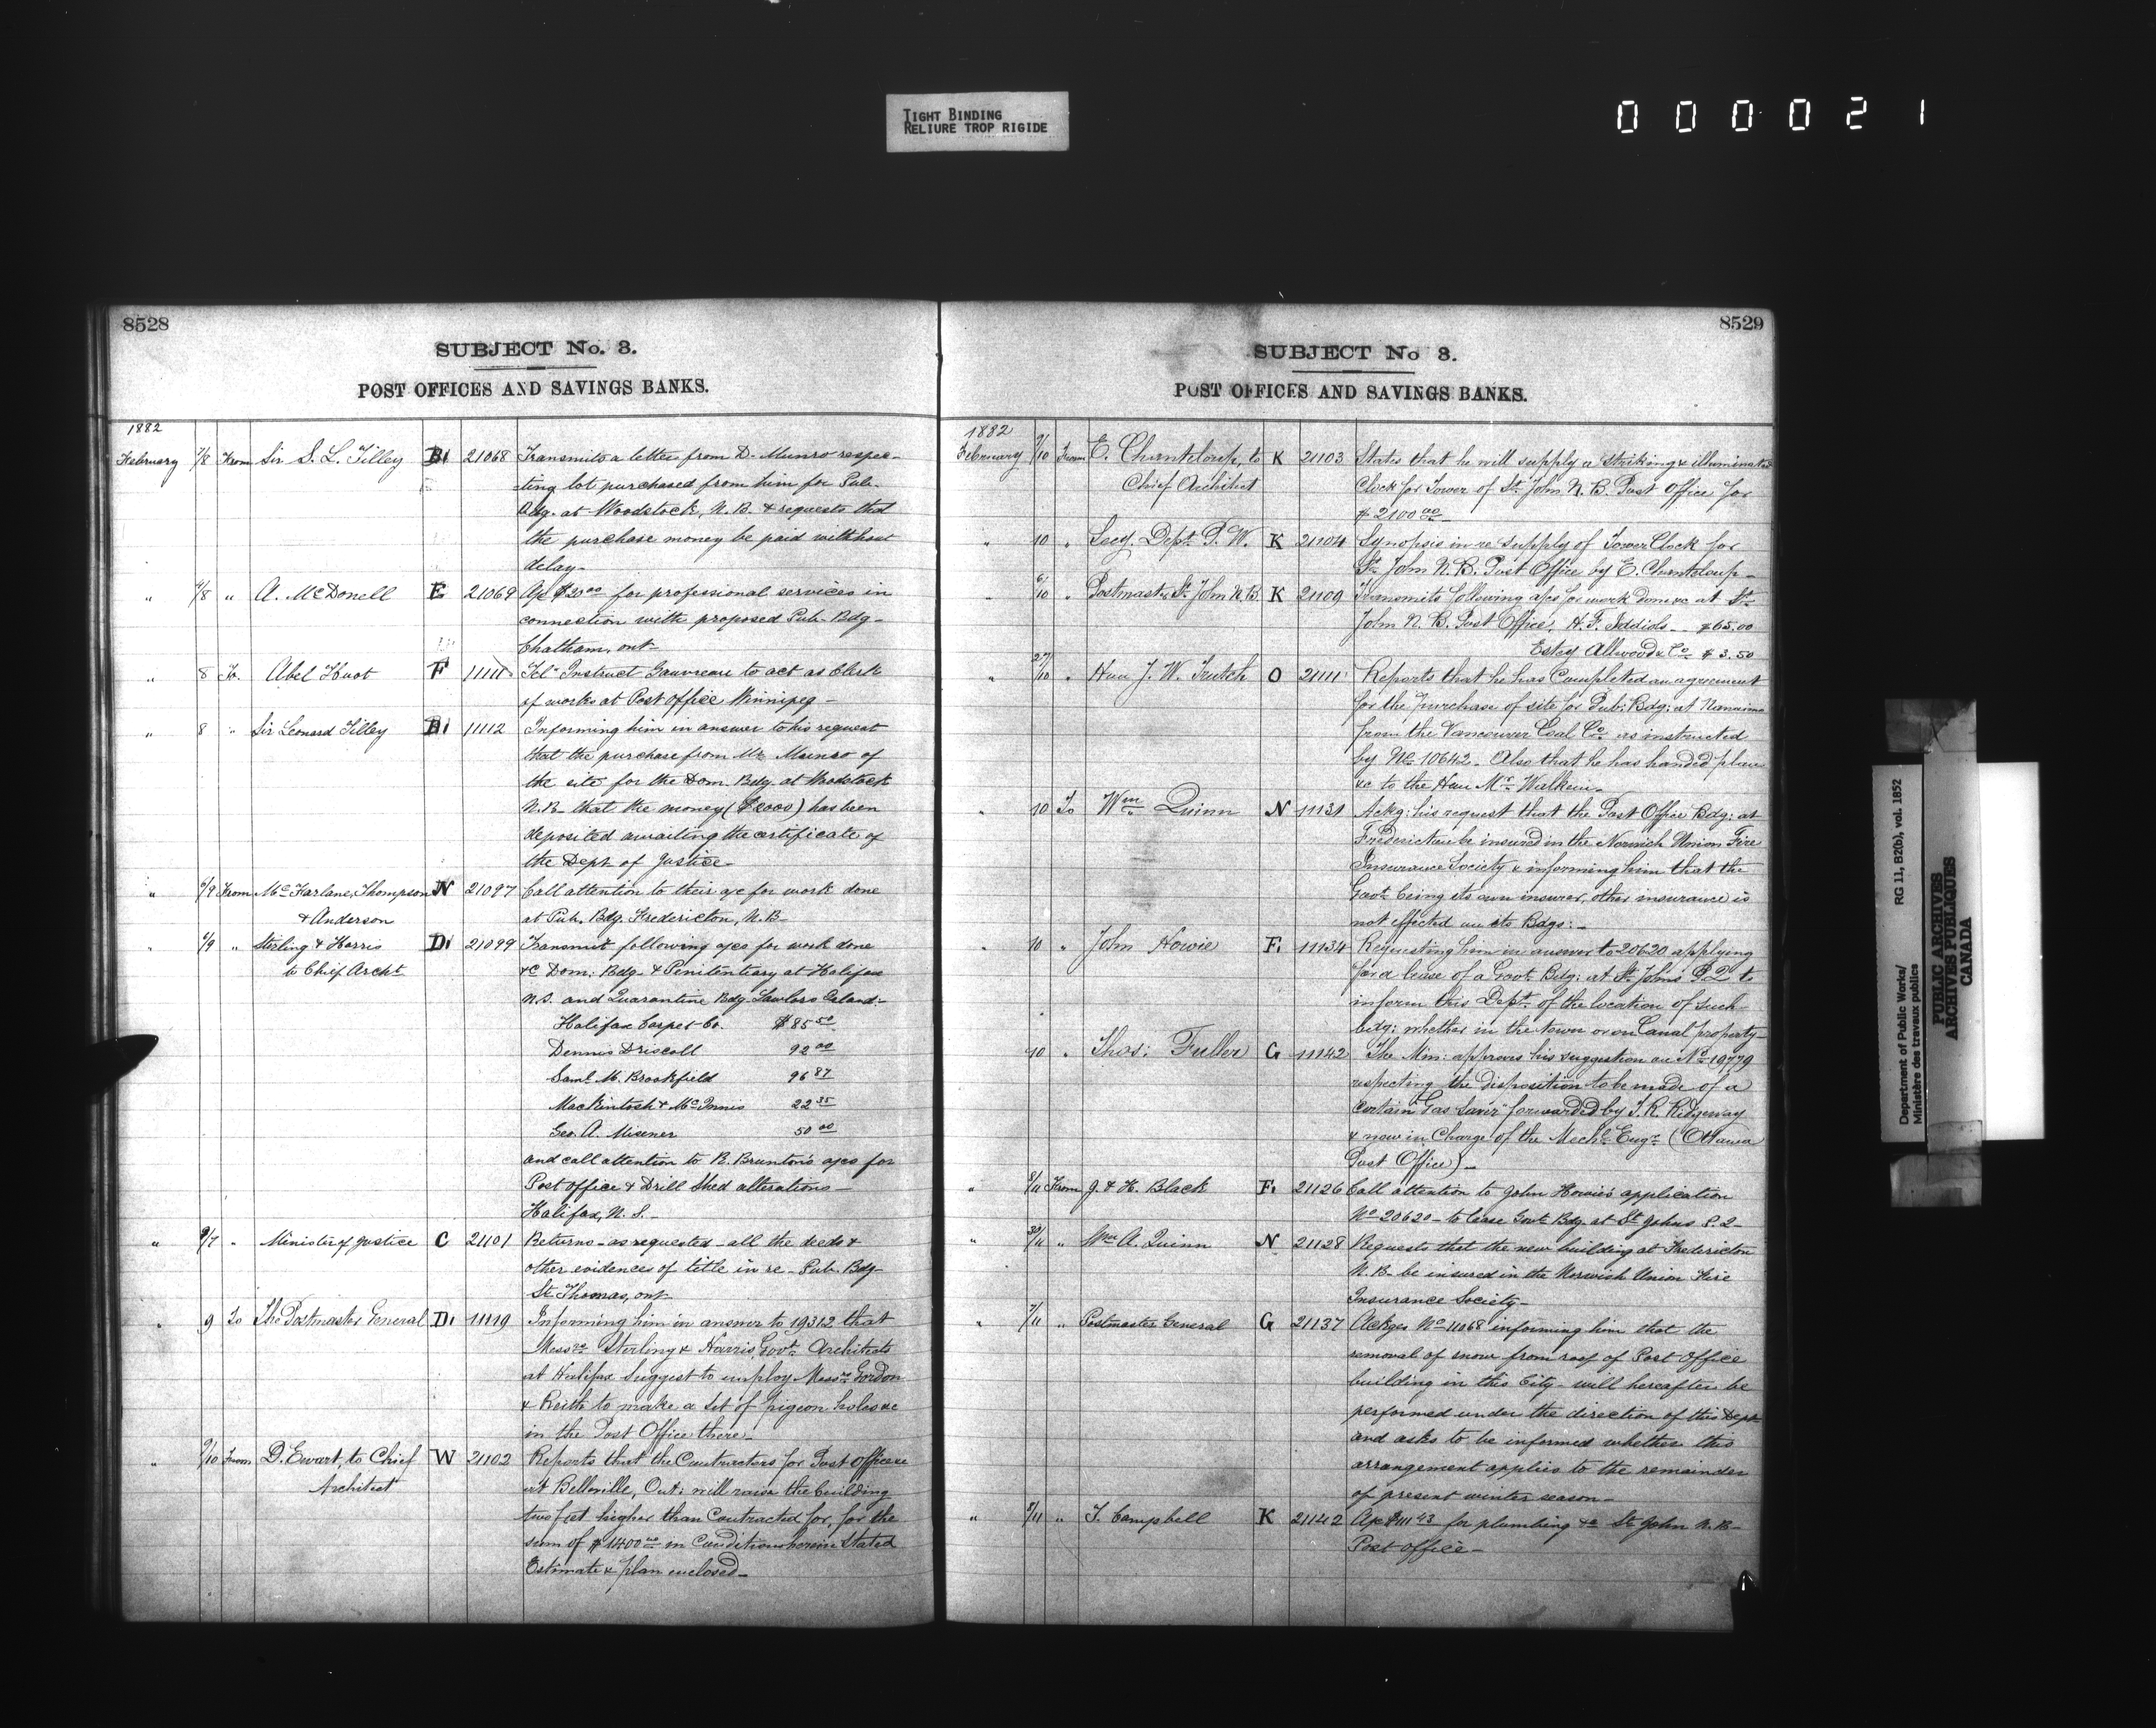 TIGHT BINDING
RELIURE TROP RIGIDE
000021
8528
SUBJECT No. 3.
POST OFFICES AND SAVINGS BANKS.
1882
February 7/8 From Sir S. L. Tilley B1 21068 Transmits a letter from D. Munro respec-
-ting lot purchased from him for Pub.
Bdg. at Woodstock, N.B. & requests that
the purchase money be paid without
delay-
" 4/8 " A. McDonell E 21069 A/c $20.00 for professional services in
connection with proposed Pub. Bdg-
Chatham, ont-
" 8 To. Abel Huot F 11111 Tel- Instruct Gauvreau to act as Clerk
of works at Post office Winnipeg-
" 8 " Sir Leonard Tilley B1 11112 Informing him in answer to his request
that the purchase from Mr. Munro of
the site for the Dom. Bdg. at Woodstock
N.B. that the money ($2000) has been
deposited awaiting the certificate of
the Dept of Justice-
" 6/9 From McFarlane, Thompson N 21097 Call attention to their a/c for work done
& Anderson at Pub. Bdg. Fredericton, N.B-
" 6/9 " Stirling & Harris D1 21099 Transmit following a/cs for work done
to Chief Archt &c Dom: Bdg. & Penitentiary at Halifax
N.S. and Quarantine Bdg. Lawlors Island:-
Halifax Carpet Co. $85.50
Dennis Driscoll 92.00
Saml. M. Brookfield 96.87
Mackintosh & McInnis 22.35
Geo. A. Misener 50.00
and call attention to R. Brunton's a/cs for
Post office & Drill Shed alterations-
Halifax, N.S.-
" 9/7 " Minister of Justice C 21101 Returns-as requested-all the deeds &
other evidences of title in re-Pub. Bdg-
St. Thomas, ont-
" 9 To The Postmaster General D1 11119 Informing him in answer to 19312 that
Messrs Stirling & Harris, Govt. Architects
at Halifax suggest to employ Messrs Gordon
& Keith to make a set of pigeon holes &c
in the Post Office there-
" 9/10 From D. Ewart, to Chief W 21102 Reports that the Contractors for Post office &c
Architect at Belleville, Ont: will raise the building
two feet higher than Contracted for, for the
sum of $1400.00 on Conditions herein stated
Estimate & plan enclosed-
8529
SUBJECT No 3.
POST OFFICES AND SAVINGS BANKS.
1882
February 9/10 From E. Chanteloup, to K 21103 States that he will supply a striking & illuminated
Chief Architect Clock for Tower of St. John N.B. Post Office for
$2100.00
" 10 " Secy. Dept. P.W. K 21104 Synopsis in re supply of Tower Clock for
St. John N.B. Post Office by E. Chanteloup-
" 6/10 " Postmaster St. John N.B. K 21109 Transmits following a/cs for work done &c at St.
John N.B. Post Office, H.F. Iddiols- $65.00
Estey Allwood & Co. $3.50
" 27/10 " Hon J. W. Trutch O 21111 Reports that he has Completed an agreement
for the purchase of site for Pub: Bdg: at Nanaimo
from the Vancouver Coal Co. as instructed
by No. 10642. Also that he has handed plan
&c to the Hon Mr. Walkem-
" 10 To Wm. Quinn N 11131 Ackg: his request that the Post Office Bdg: at
Fredericton be insured in the Norwich Union Fire
Insurance Society & informing him that the
Govt. being its own insurer, other insurance is
not effected on its Bdgs:-
" 10 " John Howie F1 11134 Requesting him in answer to 20620 applying
for a lease of a Govt. Bdg: at St. Johns P.Q. to
inform this Dept. of the location of such
bdg: whether in the town or on Canal property-
10 " Thos: Fuller G 11142 The Min: approves his suggestion on No. 19779
respecting the disposition to be made of a
certain "Gas Saver" forwarded by T.R. Ridgeway
& now in charge of the Mechl. Engr. (Ottawa
Post Office)-
" 8/11 From J. & H. Black F1 21126 Call attention to John Howie's application
No 20620-to lease Govt. Bdg. at St Johns P.Q-
" 30/11 " Wm A. Quinn N 21128 Requests that the new building at Fredericton
N.B- be insured in the Norwich Union Fire
Insurance Society-
" 7/11 " Postmaster General G 21137 Ackges No 11068 informing him that the
removal of snow from roof of Post Office
building in this City-will hereafter be
performed under the direction of this Dept
and asks to be informed whether this
arrangement applies to the remainder
of present winter season-
" 8/11 " T. Campbell K 21142 A/c $111.43 for plumbing &c St John N.B-
Post office-
Department of Public Works/ RG 11, B2(b), vol. 1852
Ministère des travaux publics
PUBLIC ARCHIVES
ARCHIVES PUBLIQUES
CANADA